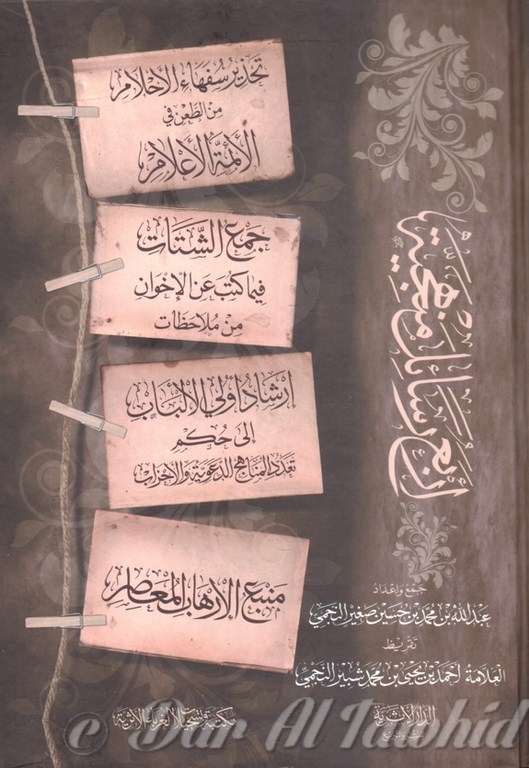 أربع رسائل منهجية
تحذير سفهاء الأحلام
من الطعن في
الأئمة الأعلام
جمع الشتات
فيما كتب عن الإخوان
من ملاحظات
إرشاد أولي الألباب
إلى حكم
تعدد المناهج الدعوية والأحزاب
منبع الإرهاب المعاصر
جمع وإعداد
عبد الله بن محمد بن حسين صغير النجمي
تقريظ
العلامة أحمد بن يحيى بن محمد شبير النجمي
الدار الأثرية
مكتبة وتسجيلات الغرباء الأثرية
© Dar Al Tawhid